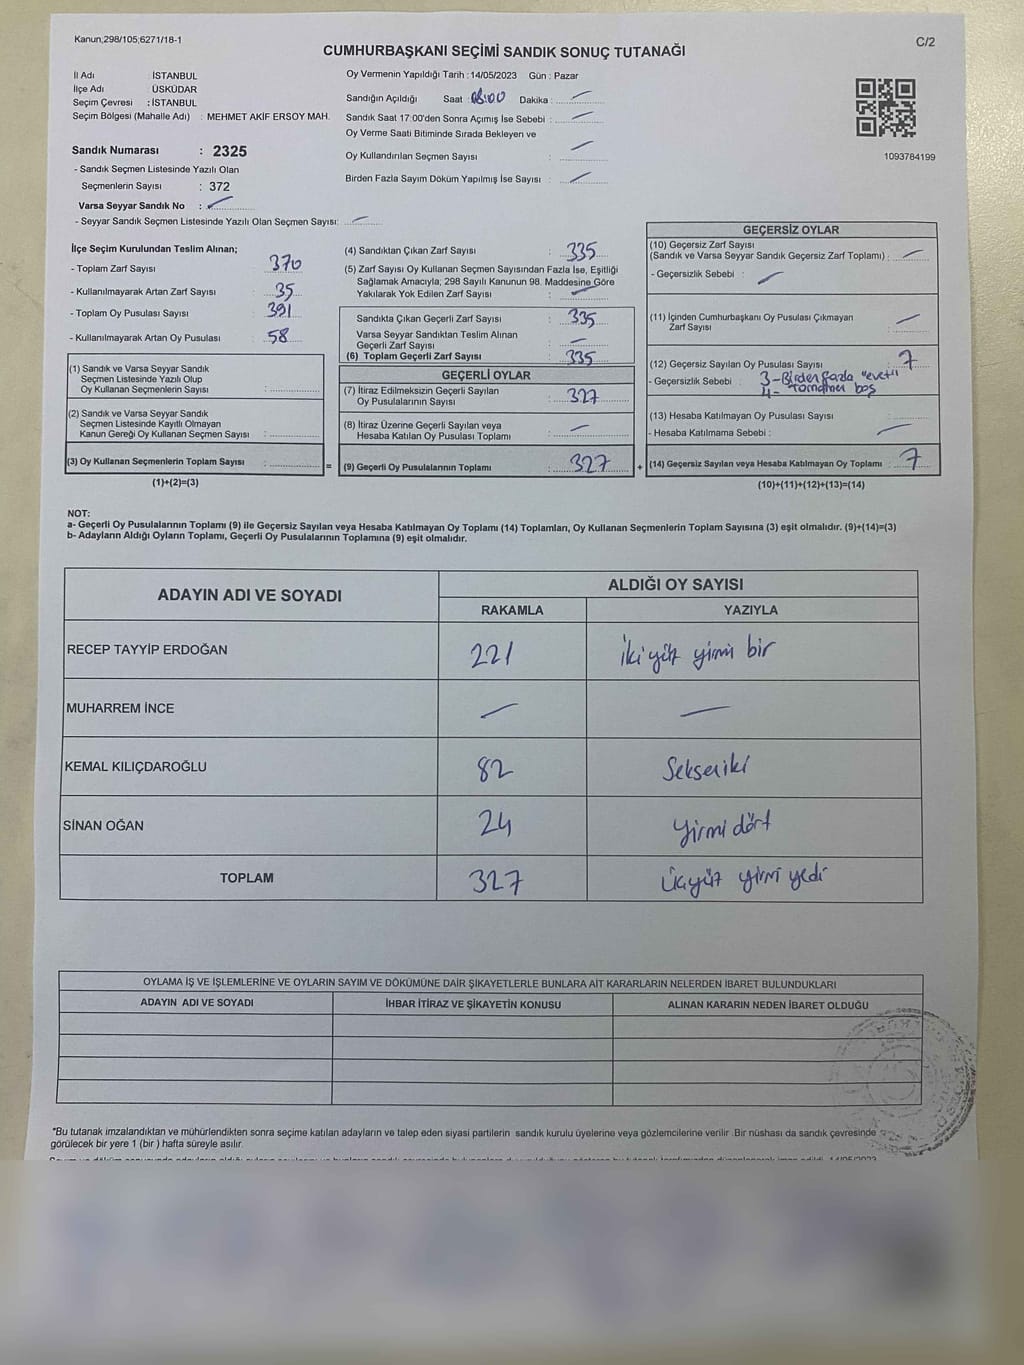 Kanun;298/105;6271/18-1
C/2
CUMHURBAŞKANI SEÇİMİ SANDIK SONUÇ TUTANAĞI
İl Adı : İSTANBUL
İlçe Adı : ÜSKÜDAR
Seçim Çevresi : İSTANBUL
Seçim Bölgesi (Mahalle Adı) : MEHMET AKİF ERSOY MAH.
Sandık Numarası : 2325
- Sandık Seçmen Listesinde Yazılı Olan
Seçmenlerin Sayısı : 372
Varsa Seyyar Sandık No :
- Seyyar Sandık Seçmen Listesinde Yazılı Olan Seçmen Sayısı:
Oy Vermenin Yapıldığı Tarih : 14/05/2023 Gün : Pazar
Sandığın Açıldığı Saat : 08:00 Dakika :
Sandık Saat 17:00'den Sonra Açımış İse Sebebi :
Oy Verme Saati Bitiminde Sırada Bekleyen ve
Oy Kullandırılan Seçmen Sayısı :
Birden Fazla Sayım Döküm Yapılmış İse Sayısı :
1093784199
İlçe Seçim Kurulundan Teslim Alınan;
- Toplam Zarf Sayısı : 370
- Kullanılmayarak Artan Zarf Sayısı : 35
- Toplam Oy Pusulası Sayısı : 391
- Kullanılmayarak Artan Oy Pusulası : 58
(1) Sandık ve Varsa Seyyar Sandık
Seçmen Listesinde Yazılı Olup
Oy Kullanan Seçmenlerin Sayısı :
(2) Sandık ve Varsa Seyyar Sandık
Seçmen Listesinde Kayıtlı Olmayan
Kanun Gereği Oy Kullanan Seçmen Sayısı :
(3) Oy Kullanan Seçmenlerin Toplam Sayısı : =
(1)+(2)=(3)
(4) Sandıktan Çıkan Zarf Sayısı : 335
(5) Zarf Sayısı Oy Kullanan Seçmen Sayısından Fazla İse, Eşitliği
Sağlamak Amacıyla; 298 Sayılı Kanunun 98. Maddesine Göre
Yakılarak Yok Edilen Zarf Sayısı :
Sandıkta Çıkan Geçerli Zarf Sayısı : 335
Varsa Seyyar Sandıktan Teslim Alınan
Geçerli Zarf Sayısı :
(6) Toplam Geçerli Zarf Sayısı : 335
GEÇERLİ OYLAR
(7) İtiraz Edilmeksizin Geçerli Sayılan
Oy Pusulalarının Sayısı : 327
(8) İtiraz Üzerine Geçerli Sayılan veya
Hesaba Katılan Oy Pusulası Toplamı :
(9) Geçerli Oy Pusulalarının Toplamı : 327 +
GEÇERSİZ OYLAR
(10) Geçersiz Zarf Sayısı
(Sandık ve Varsa Seyyar Sandık Geçersiz Zarf Toplamı) :
- Geçersizlik Sebebi :
(11) İçinden Cumhurbaşkanı Oy Pusulası Çıkmayan
Zarf Sayısı :
(12) Geçersiz Sayılan Oy Pusulası Sayısı : 7
- Geçersizlik Sebebi : 3-Birden fazla "evet"
4- Tamamen boş
(13) Hesaba Katılmayan Oy Pusulası Sayısı :
- Hesaba Katılmama Sebebi :
(14) Geçersiz Sayılan veya Hesaba Katılmayan Oy Toplamı : 7
(10)+(11)+(12)+(13)=(14)
NOT:
a- Geçerli Oy Pusulalarının Toplamı (9) ile Geçersiz Sayılan veya Hesaba Katılmayan Oy Toplamı (14) Toplamları, Oy Kullanan Seçmenlerin Toplam Sayısına (3) eşit olmalıdır. (9)+(14)=(3)
b- Adayların Aldığı Oyların Toplamı, Geçerli Oy Pusulalarının Toplamına (9) eşit olmalıdır.
ADAYIN ADI VE SOYADI
ALDIĞI OY SAYISI
RAKAMLA YAZIYLA
RECEP TAYYİP ERDOĞAN 221 İki yüz yirmi bir
MUHARREM İNCE
KEMAL KILIÇDAROĞLU 82 Sekseniki
SİNAN OĞAN 24 Yirmi dört
TOPLAM 327 Üçyüz yirmi yedi
OYLAMA İŞ VE İŞLEMLERİNE VE OYLARIN SAYIM VE DÖKÜMÜNE DAİR ŞİKAYETLERLE BUNLARA AİT KARARLARIN NELERDEN İBARET BULUNDUKLARI
ADAYIN ADI VE SOYADI İHBAR İTİRAZ VE ŞİKAYETİN KONUSU ALINAN KARARIN NEDEN İBARET OLDUĞU
*Bu tutanak imzalandıktan ve mühürlendikten sonra seçime katılan adayların ve talep eden siyasi partilerin sandık kurulu üyelerine veya gözlemcilerine verilir. Bir nüshası da sandık çevresinde
görülecek bir yere 1 (bir ) hafta süreyle asılır.